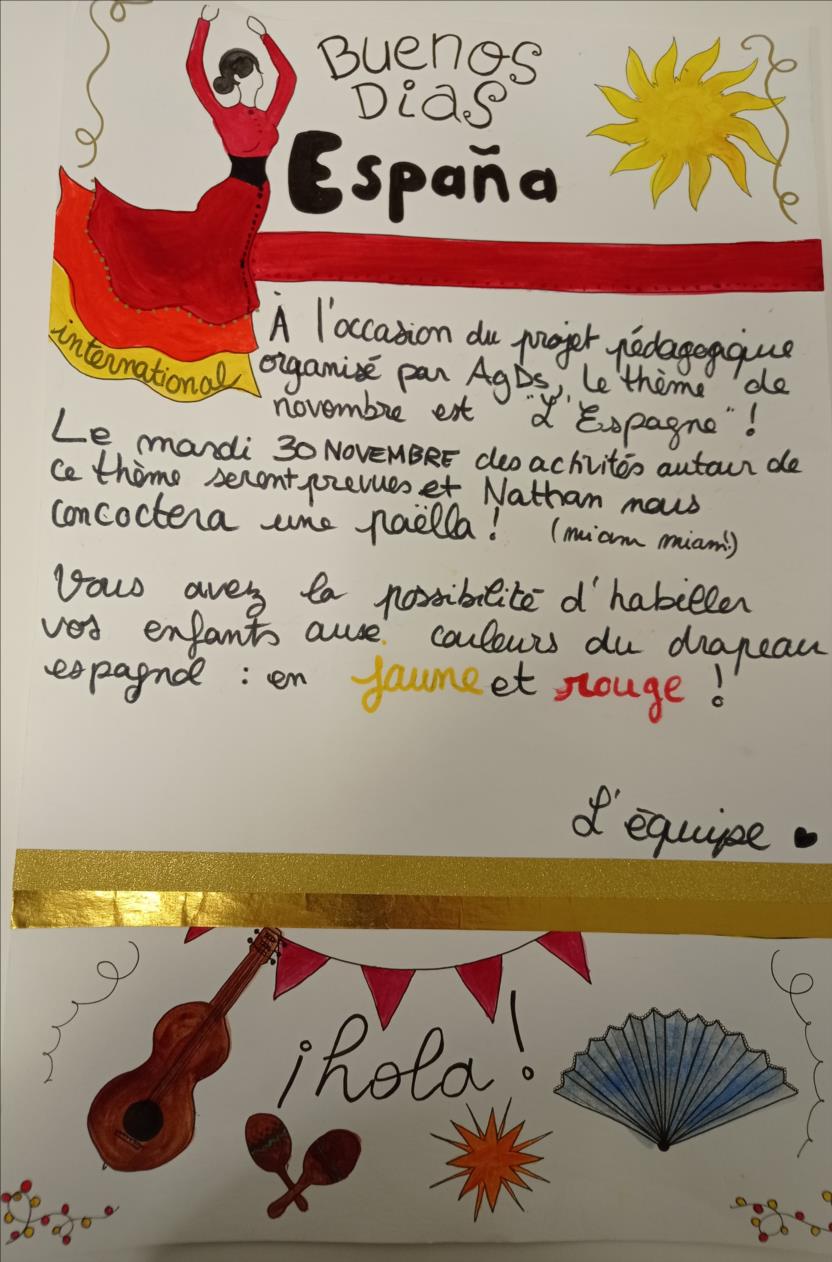 BUENOS
DiAS
España
international
À l'occasion du projet pédagogique
organisé par AgDs, le thème de
novembre est "L'Espagne" !
Le mardi 30 NOVEMBRE des activités autour de
ce thème seront prevues et Nathan nous
concoctera une paëlla ! (miam miam!)
Vous avez la possibilité d'habiller
vos enfants aux couleurs du drapeau
espagnol : en jaune et rouge !
L'équipe
¡hola!